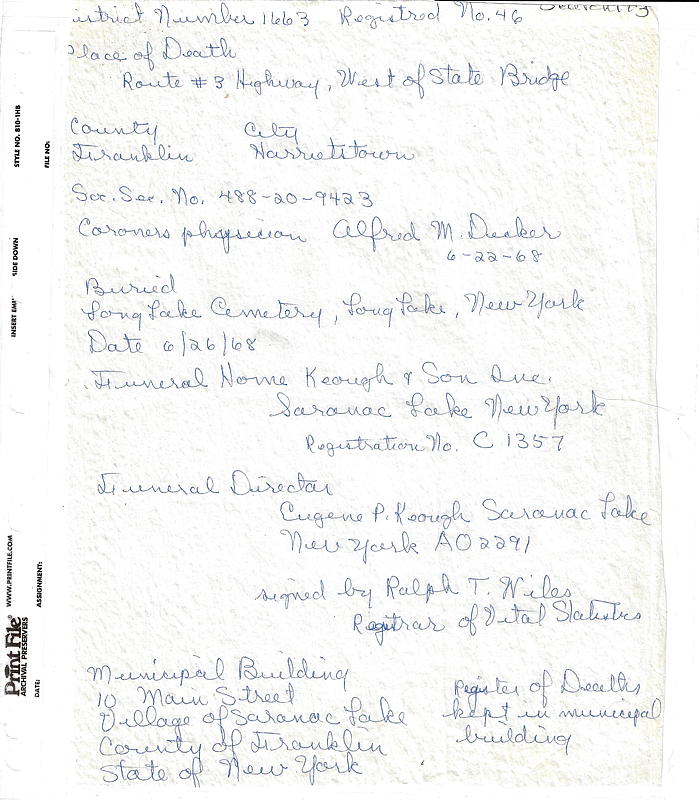 istrict Number 1663 Registred No. 46
Place of Death
Route #3 Highway, West of State Bridge
County City
Franklin Harrietstown
Soc. Sec. No. 488-20-9423
Coroners physician Alfred M. Decker
6-22-68
Buried
Long Lake Cemetery, Long Lake, New York
Date 6/26/68
Funeral Home Keough & Son Inc.
Saranac Lake New York
Registration No. C 1357
Funeral Director
Eugene P. Keough Saranac Lake
New York AO2291
signed by Ralph T. Niles
Registrar of Vital Statistics
Municipal Building
10 Main Street
Village of Saranac Lake
County of Franklin
State of New York
Register of Deaths
kept in municipal
building
STYLE NO. 810-1HB
FILE NO:
SIDE DOWN
INSERT EM
Print File
ARCHIVAL PRESERVERS
WWW.PRINTFILE.COM
DATE:
ASSIGNMENT: